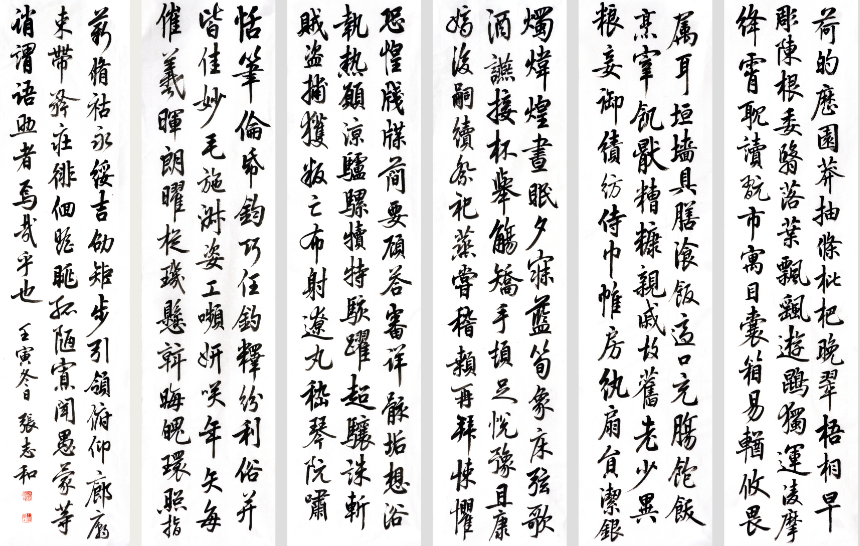 荷的歷園莽抽條枇杷晚翠梧桐早
彫陳根委翳落葉飄颻遊鵾獨運凌摩
絳霄耽讀翫市寓目囊箱易輶攸畏
属耳垣墻具膳飡飯適口充腸飽飫
烹宰飢猒糟糠親戚故舊老少異
粮妾御績紡侍巾帷房紈扇員潔銀
燭煒煌晝眠夕寐藍筍象床弦歌
酒讌接杯舉觴矯手頓足悅豫且康
嫡後嗣續祭祀蒸嘗稽顙再拜悚懼
恐惶牋牒簡要顧答審詳骸垢想浴
執熱願涼驢騾犢特駭躍超驤誅斬
賊盜捕獲叛亡布射遼丸嵇琴阮嘯
恬筆倫帋鈞巧任釣釋紛利俗并
皆佳妙毛施淑姿工嚬妍咲年矢每
催羲暉朗曜旋璣懸斡晦魄環照指
薪脩祜永綏吉劭矩步引領俯仰廊廟
束帶矜莊徘徊瞻眺孤陋寡聞愚蒙等
誚謂語助者焉哉乎也 壬寅冬日 張志和